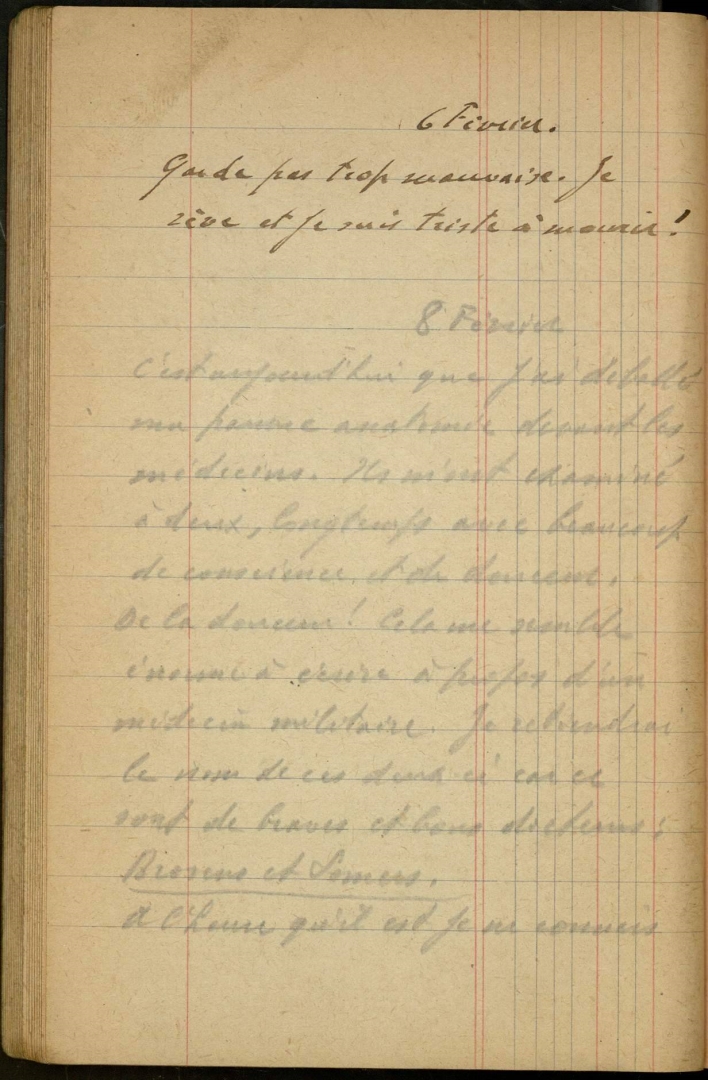 6 Février.
Garde pas trop mauvaise. Je
rêve et je suis triste à mourir!
8 Février
C'est aujourd'hui que j'ai déballé
ma pauvre anatomie devant les
médecins. Ils m'ont examiné
à deux, longtemps avec beaucoup
de conscience et de douceur.
De la douceur! Cela me semble
énorme à écrire à propos d'un
médecin militaire. Je retiendrai
le nom de ces deux ci car ce
sont de braves et bons docteurs:
et Somers.
A l'heure qu'il est je ne connais